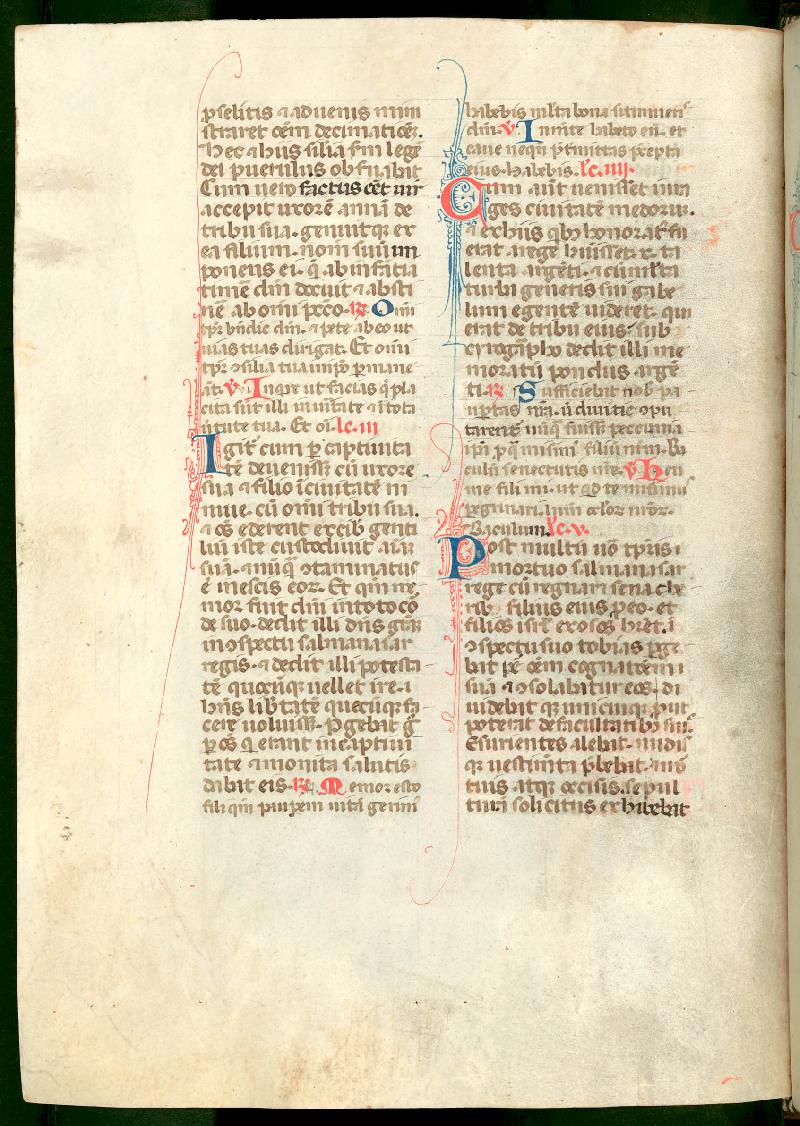 pselitis ⁊ aduenis mini
straret oēm decimatiōēz.
Hec ⁊ hiis silia scm legē
dei puerulus obseruabat
Cum uero factus eēt uir
accepit uxorē annā de
tribu sua. genuitqꝫ ex
ea filium. nomē suū im
ponens ei. quē ab infātia
timē dm̄ docuit ⁊ absti
nē ab omi pctō. R. Omi
tpr bn̄dic dm̄. ⁊ pete ab eo ut
uias tuas dirigat. Et omi
tpr ꝯsilia tua in ipō permane
āt. V. Inqre ut facias q̄ pla
cita sūt illi in uītate ⁊ ī tota
uirtute tua. Et oī. lc. iii
Igit̄ cum ꝑ captiuita
tē deuenissꝫ cū uxore
sua ⁊ filio ī ciuitatē ni
niue. cū omi tribu sua.
⁊ oēs ederent ex cib genti
liū iste custodiuit aīaꝫ
suā. ⁊ nūqꝫ ꝯtaminatus
ē in escis eoꝝ. Et qm̄ me
mor fuit dm̄ in toto cor
de suo. dedit illi dn̄s grāꝫ
in ꝯspectu salmanasar
regis. ⁊ dedit illi potesta
tē quocūqꝫ uellet ire. ⁊
hn̄s libtatē quecūqꝫ fa
cere uoluissꝫ. Pgebat g̊
ꝑ oēs q̄ erant in captiui
tate ⁊ monita salutis
dabat eis. R. Memor esto
fili qm̄ paupem uitā gerim
habebis mlta bona si timueri
dm̄. V. In mēte habeto eū. et
caue neqn̄ p̄tmittas precepta
eius. habebis. lc. iiii.
Cum aūt uenisset in ra
ges ciuitatē medoruꝫ.
⁊ ex hiis qbꝫ honorat̄ fu
erat a rege habuisset. x. ta
lenta argēti. ⁊ cū mlta
turba generis sui gabe
lum egentē uideret. qui
erat de tribu eius. sub
cyrogapho dedit illi me
moratū pondus argē
ti. R. Sufficiebat nob pa
uptas nr̄a. ū diuitie cōpu
tarent̄ nūqꝫ fuissꝫ peccunia
ipā pro qua misim filiū nrm̄. Ba
culū senectutis nr̄e. V. Heu
me fili mi. ut qd te misimus
pegrinari. lum̄ ocloꝝ nr̄oꝝ.
Baculum. lc. v.
Post multū uō tpris.
mortuo salmanasar
rege cū regnaret senache
rib. filius eius pro eo. et
filios isrl exosos hret. ī
ꝯspectu suo tobias pge
bat per oēm cognatōem
suā. ⁊ ꝯsolabatur eos. di
uidebat qꝫ unicuiqꝫ prout
poterat de facultatibꝫ suis.
Esurientes alebat. nudis
qꝫ uestimta p̄bebat. mor
tuis atqꝫ occisis. sepul
turā solicitus exhibebat